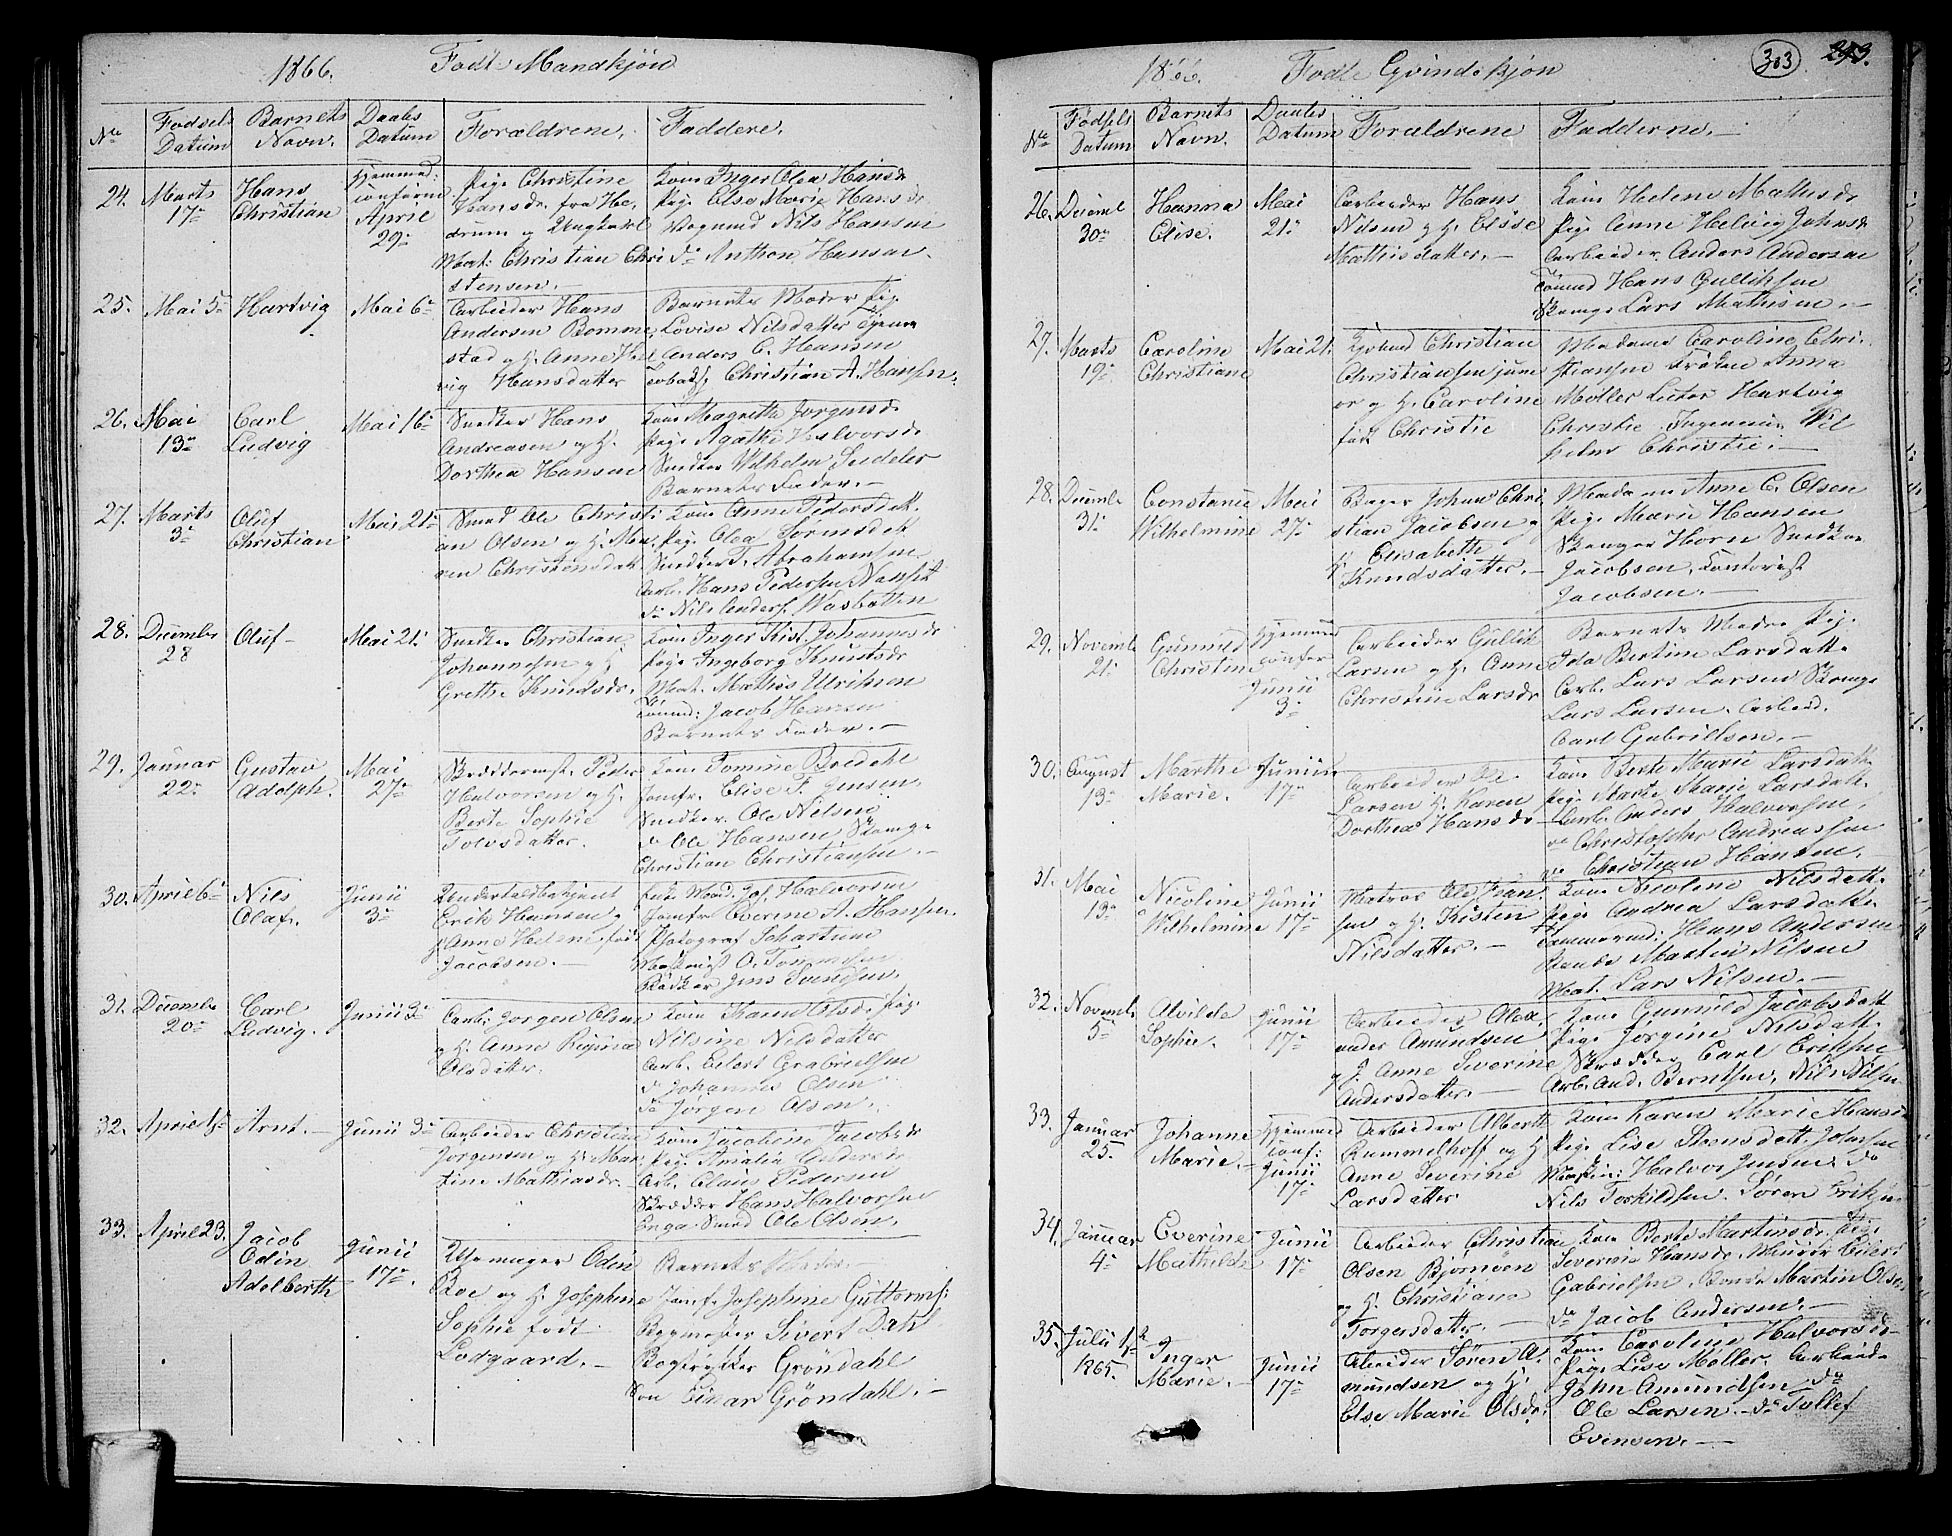 1866. Født Mandkjøn
No Fødsels Datum Barnets Navn. Daabs Datum Forældrene. Faddere.
24. Marts 17de Hans Christian Hjemmed: April 29de
Pige Christine
Hansdr. fra
og Ungkarl
Mat: Christian Chri
stensen.
Kone Inger Olea Hansdr
Pige Else Marie Hansdr
Nils Hansen
do Anthon Hansen.
25. Mai 5te Hartvig Mai 6te
Arbeider Hans
Andersen Bomme
stad og H. Anne Hel
vig Hansdatter
Barnets Moder Pige
Lovise Nilsdatter
Anders C. Hansen
Christian A. Hansen.
26. Mai 13de Carl Ludvig Mai 16de
Snedker Hans
Andreasen og H.
Dorthea Hansen
Kone Magrethe Jørgensdr
Pige Agathe Halvorsdr
Snedker Wilhelm Seideler
Barnets Fader.
27. Marts 3de Oluf Christian Mai 21de
Smed Ole Christi
an Olsen og H. Ma
ren Christensdat
Kone Anne Pedersdatt.
Pige Olea Sørensdatt
Snedker T. Abrahamsen
Arb. Hans Pedersen
do Nils Anders.
28. Decembr 28 Oluf Mai 21de
Snedker Christian
Johannesen og H.
Grethe Knudsdr.
Kone Inger Kist. Johannesdr
Pige Ingeborg Knutsdr
Mat. Mathis Ulriksen
Tømmd: Jacob Hansen
Barnets Fader.
29. Januar 22de Gustav Adolph. Mai 27de
Skræddermst. Peder
Halvorsen og H.
Berte Sophie
Tolvsdatter.
Kone Tomine Bredahl
Jomfr. Elise F. Jensen.
Snedker Ole Nilsen
do Ole Hansen
Christian Christiansen.
30. April 6te Nils Olaf. Junii 3de
Erik Hansen og
H Anne Helene født
Jacobsen.
Halvorsen
Jomfr Everine A. Hansen.
Photograf Schartum
Bødker Jens Svendsen.
31. Decembr 20de Carl Ludvig. Junii 3de
Arb: Jørgen Olsen
og H. Anne Regine
Olsdatter.
Kone Karen Olsdr. Pige
Nilsine Nilsdatter
Arb. Eilert Gabrielsen
do Johannes Olsen
do Jørgen Olsen.
32. April 1ste Arnt. Junii 3de
Arbeider Christian
Jørgensen og H. Mar
tine Mathiasdr.
Kone Jacobine Jacobsdr
Pige Amalia Andersdr
Arb. Claus Pedersen
Skrædder Hans Halvorsen
Smed Ole Olsen.
33. April 23. Jacob Odin Adelberth Junii 17de
Uhrmager Odin
Roe og H. Josephine
Sophie født
Lodgaard.
Barnets Moder.
Jomfr Josephine Guttorms:
Bygmester Sivert Dahl
Bogtrykker Grøndahl
Søn Einar Grøndahl.
1866. Fødte Qvindekjøn 303 293.
No Fødsels Datum Barnets Navn. Daabs Datum Forældrene Fadderne.
26. Decembr 30de Hanna Elise. Mai 21de
Arbeider Hans
Nilsen og H. Elisse
Mathisdatter.
Kone Helene Mathisdr
Pige Anne Helvig Johnsdr
Arbeider Anders Andersen
Tømmd Hans Gulliksen
Lars Mathisen.
27. Marts 19de Caroline Christiane Mai 21.
Christian
Christiansen juni
or og H. Caroline
født Christie
Madame Caroline Chri
stiansen Frøken Anna
Møller Hartvig
Christie Ingeniør Wil
helm Christie.
28. Decembr 31de Constance Wilhelmine Mai 27de
Bager Johan Chri
stian Jacobsen og
H. Elisabeth
Knudsdatter.
Madame Anne C. Olsen
Pige Marie Hansen
Horn Snedker
Jacobsen, Kontorist
Jacobsen.
29. Novembr 21. Gunnild Christine Hjemme Junii 3de
Arbeider Gullik
Larsen og H. Anne
Christine Larsdr
Barnets Moder Pige
Ida Bertine Larsdatter
Arb. Lars Larsen
Lars Larsen. Arbeid.
Carl Gabrielsen.
30. August 13de Marthe Marie. Junii 17de
Arbeider Ole
Larsen H. Karen
Dorthea Hansdr
Kone Berte Marie Larsdatt.
Pige Marte Marie Larsdatt.
Arb. Anders Halvorsen
do Christopher Andreassen
do Christian Hansen.
31. Mai 13de Nicoline Wilhelmine Junii 17de
Matros Ole Fran
sen og H. Kisten
Nilsdatter.
Kone Nicoline Nilsdatt.
Pige Andrea Larsdatt.
Tømmermd: Hans Andersen
Martin Nilsen
Mat. Lars Nilsen.
32. Novembr 5te Alvilde Sophie. Junii 17de
Arbeider Alex
ander Amundsen
og H. Anne Severine
Andersdatter.
Kone Gunnild Jacobsdatt
Pige Jørgine Nilsdatt.
Skrædder Carl Eriksen
Arb. And. Berntsen, Nils Nilsen
33. Januar 25. Johanne Marie. Hjemmed Conf: Junii 17de
Arbeider Alberth
Rummelhoff og H
Anne Severine
Larsdatter
Kone Karen Marie Hansdr
Pige Lise Steensdatt. Johnsen
Halvor Jensen do
Nils Torkildsen. Søren Eriksen
34. Januar 4de Everine Mathilde Junii 17de
Arbeider Christian
Olsen Bjørnøen
og H. Christiane
Torgersdatter.
Kone Berte Martinsdr. Pige
Severine Hansdr. Murer Eilert
Gabrielsen, Bonde Martin Olsen
do Jacob Andersen.
35. Julii 1ste 1865. Inger Marie. Junii 17de
Arbeider Søren A
mundsen og H.
Else Marie Olsdr.
Kone Caroline Halvorsdr
Pige Lise Møller. Arbeider
John Amundsen do
Ole Larsen. do Tollef
Evensen.